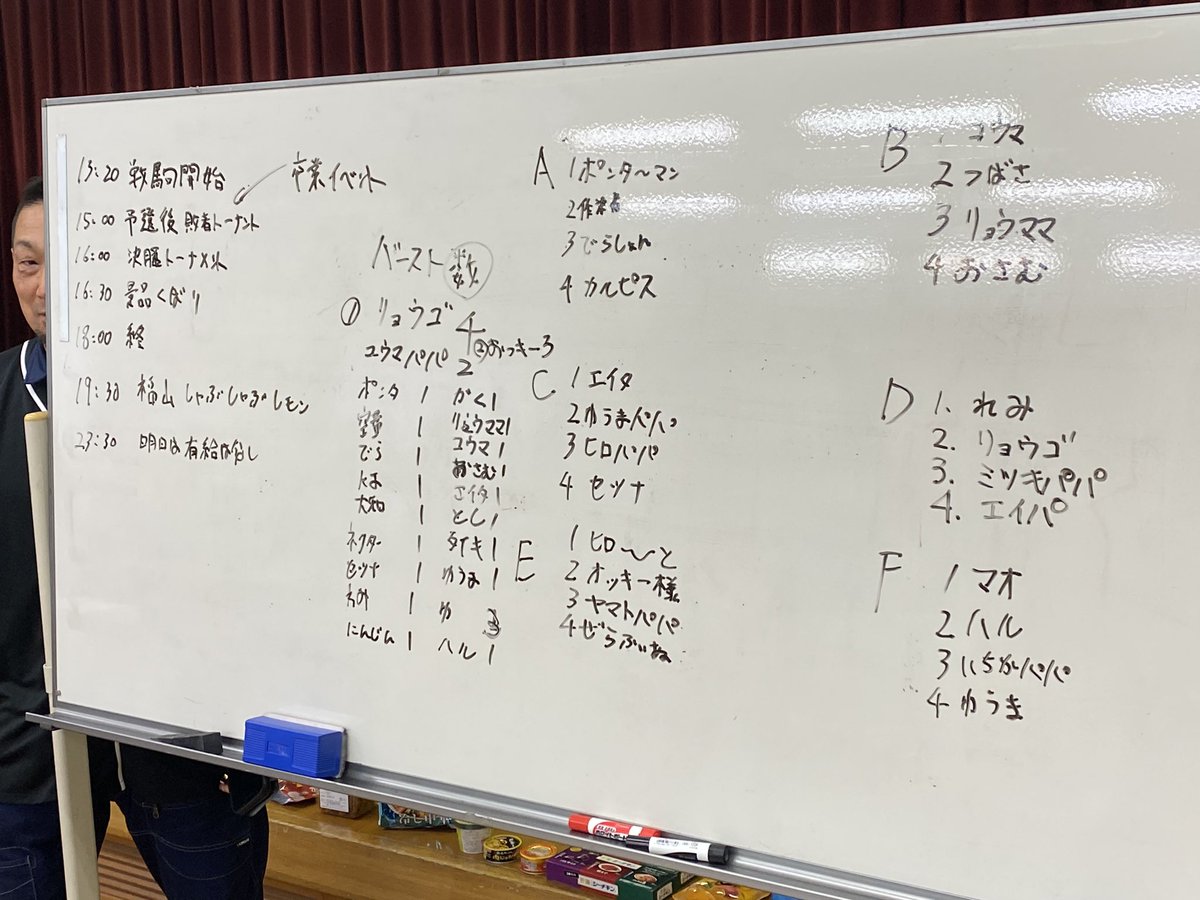 13:20 戦駒開始
卒業イベント
15:00 予選後 敗者トーナント
16:00 決勝トーナメント
16:30 景品くばり
18:00 終
19:30 福山 しゃぶしゃぶレモン
23:30 明日は有給
バースト数
① リョウゴ 4
②おっきーろ
ユウマパパ 2
ポンタ 1 がく 1
1 リョウママ 1
でら 1 ユウマ 1
1 おさむ 1
大和 1 エイタ 1
1 とし 1
ネクター 1 タイキ 1
セツナ 1 ゆうま 1
1 ゆ
にんじん 1 ハル 1
A 1 ポンタ〜マン
2
3 でらしょん
4 カルピス
B 1 ユウマ
2 つばさ
3 リョウママ
4 おさむ
C 1 エイタ
2 ゆうまパパ
3 ヒロパパ
4 セツナ
D 1. れみ
2. リョウゴ
3. ミツキパパ
4. エイパ
E 1 ヒロ〜と
2 オッキー様
3 ヤマトパパ
4 ぜらぶいね
F 1 マオ
2 ハル
3 いちかパパ
4 ゆうき